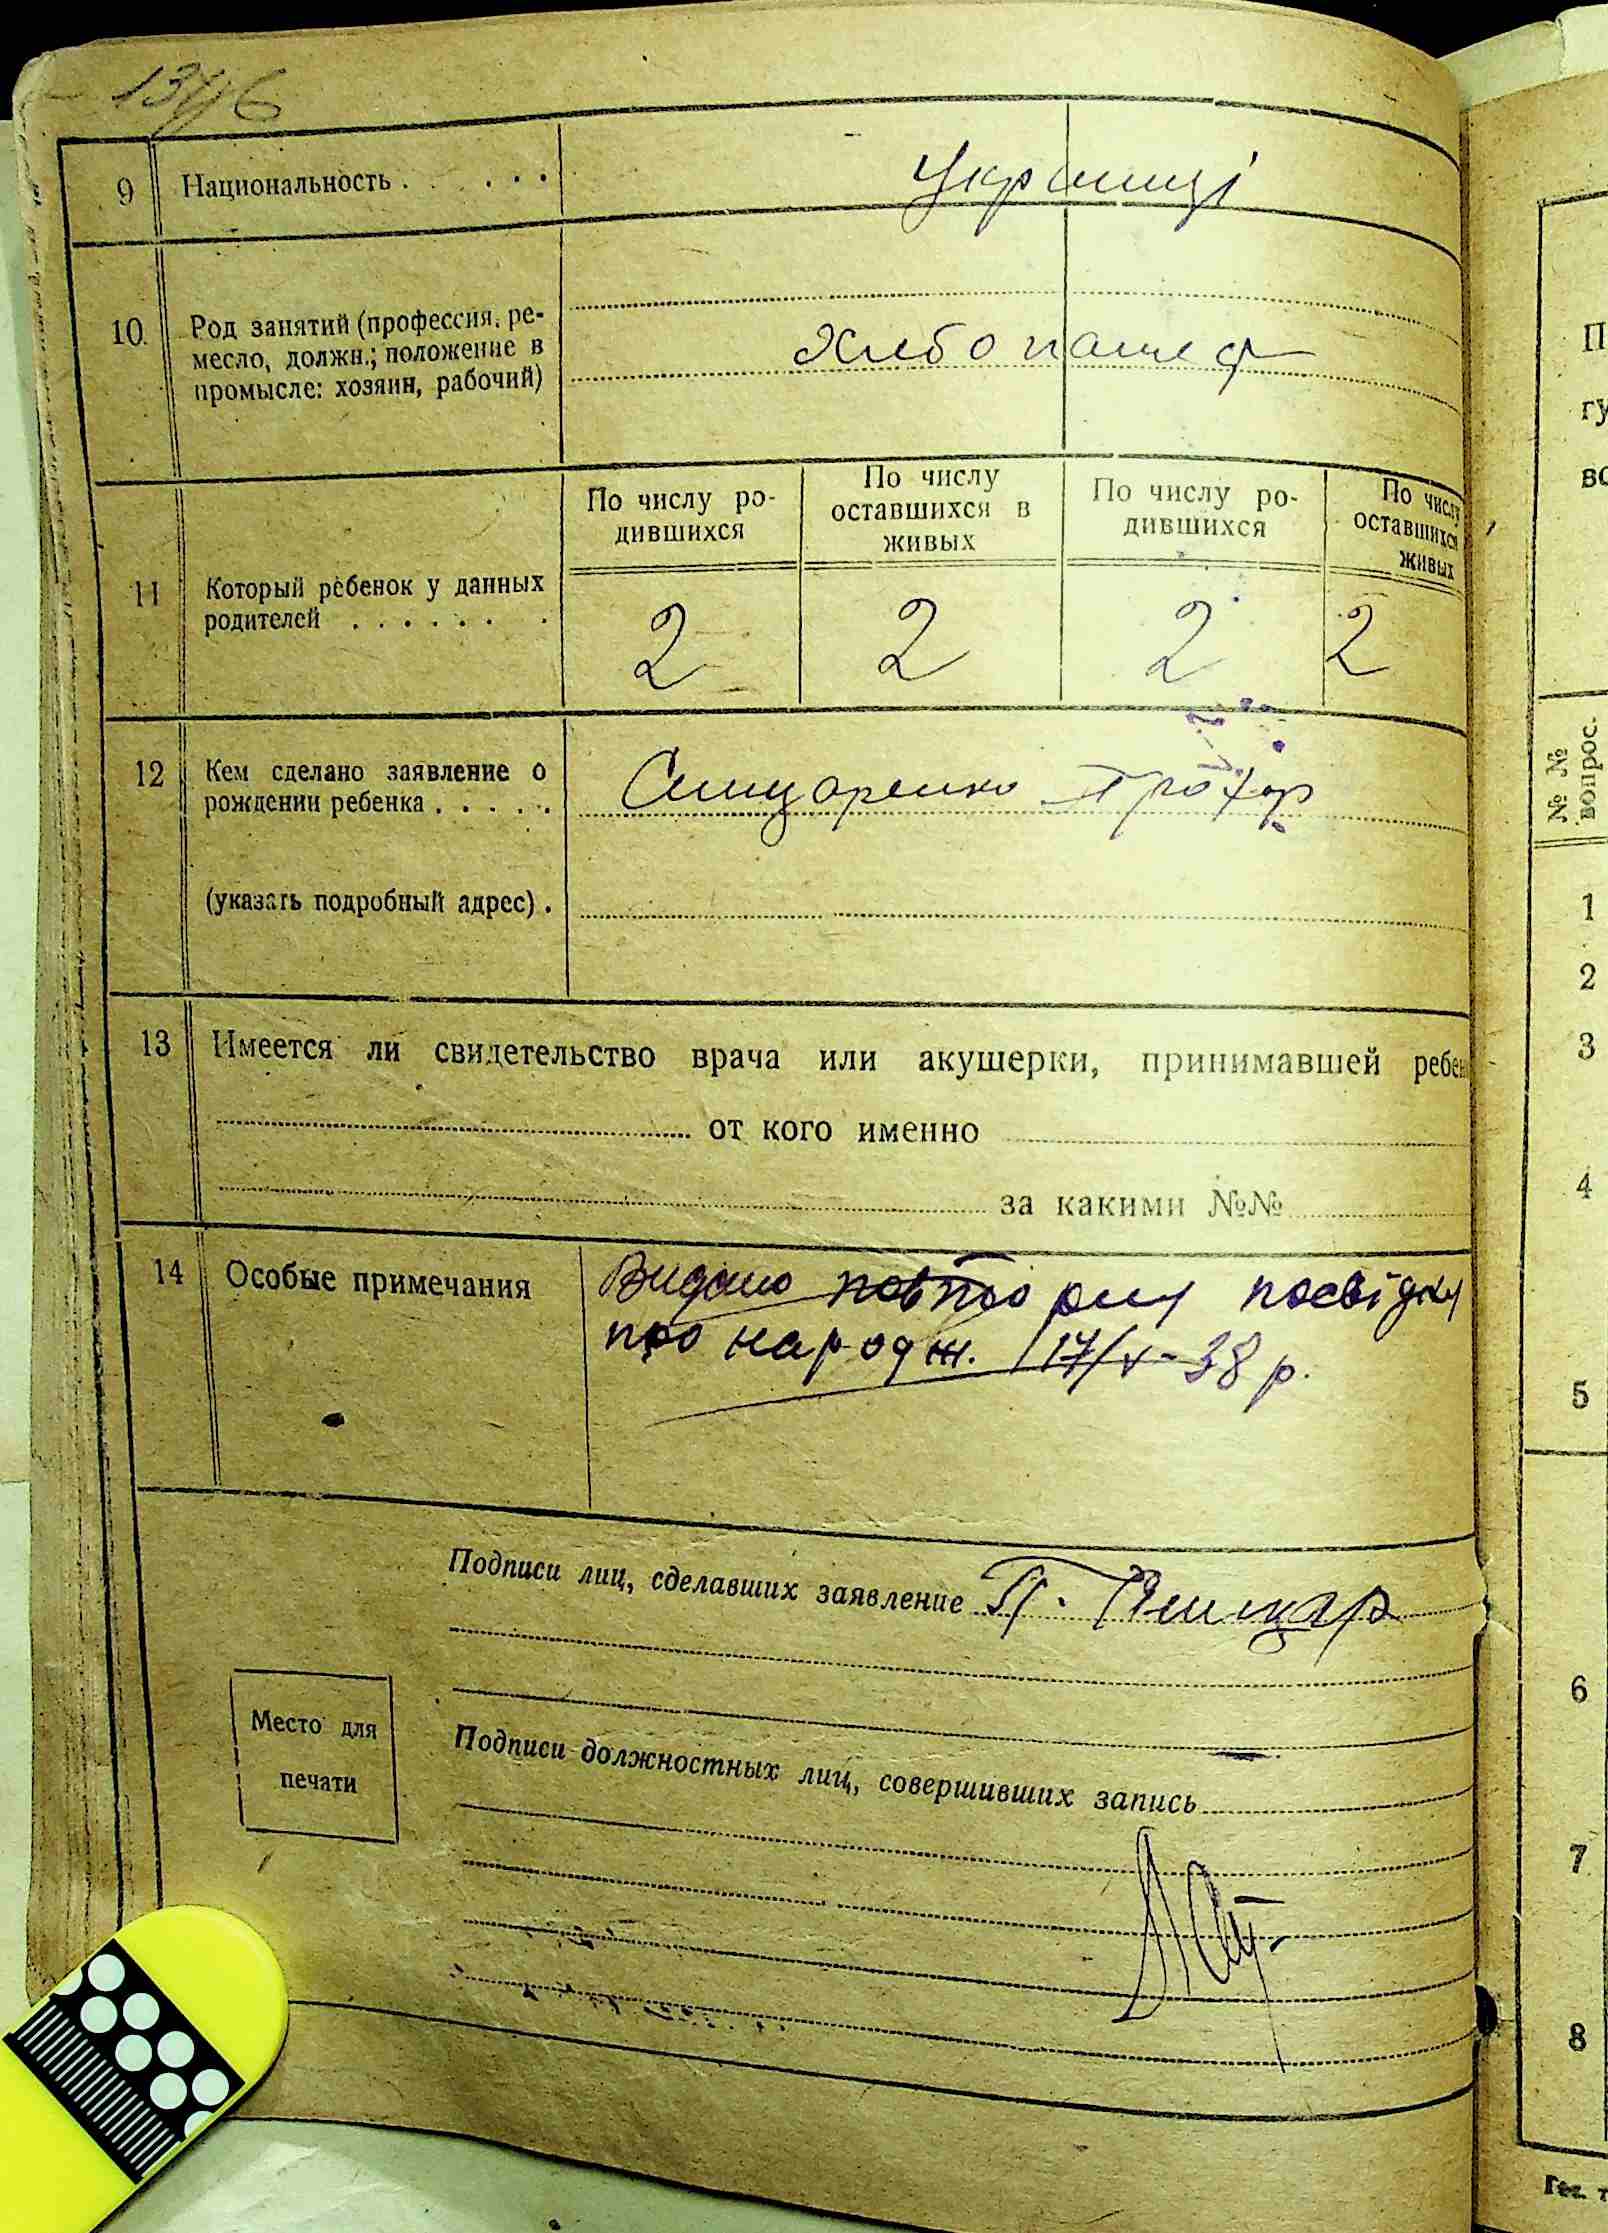 9 Национальность . . . . .
Украинці
10. Род занятий (профессия, ре-
месло, должн.; положение в
промысле: хозяин, рабочий)
Хлебопашец
По числу ро-
дившихся
По числу
оставшихся в
живых
По числу ро-
дившихся
По числу
оставшихся
живых
11 Который ребенок у данных
родителей . . . . . . .
2 2 2 2
12 Кем сделано заявление о
рождении ребенка . . . . .
Прохор
(указать подробный адрес) .
13 Имеется ли свидетельство врача или акушерки, принимавшей ребен
от кого именно
за какими №№
14 Особые примечания
Видано повторну посвідку
про народж. 17/V-38 р.
Подписи лиц, сделавших заявление П.
Место для
печати
Подписи должностных лиц, совершивших запись
П
гу
во
№ №
вопрос.
1
2
3
4
5
6
7
8
Гос. т